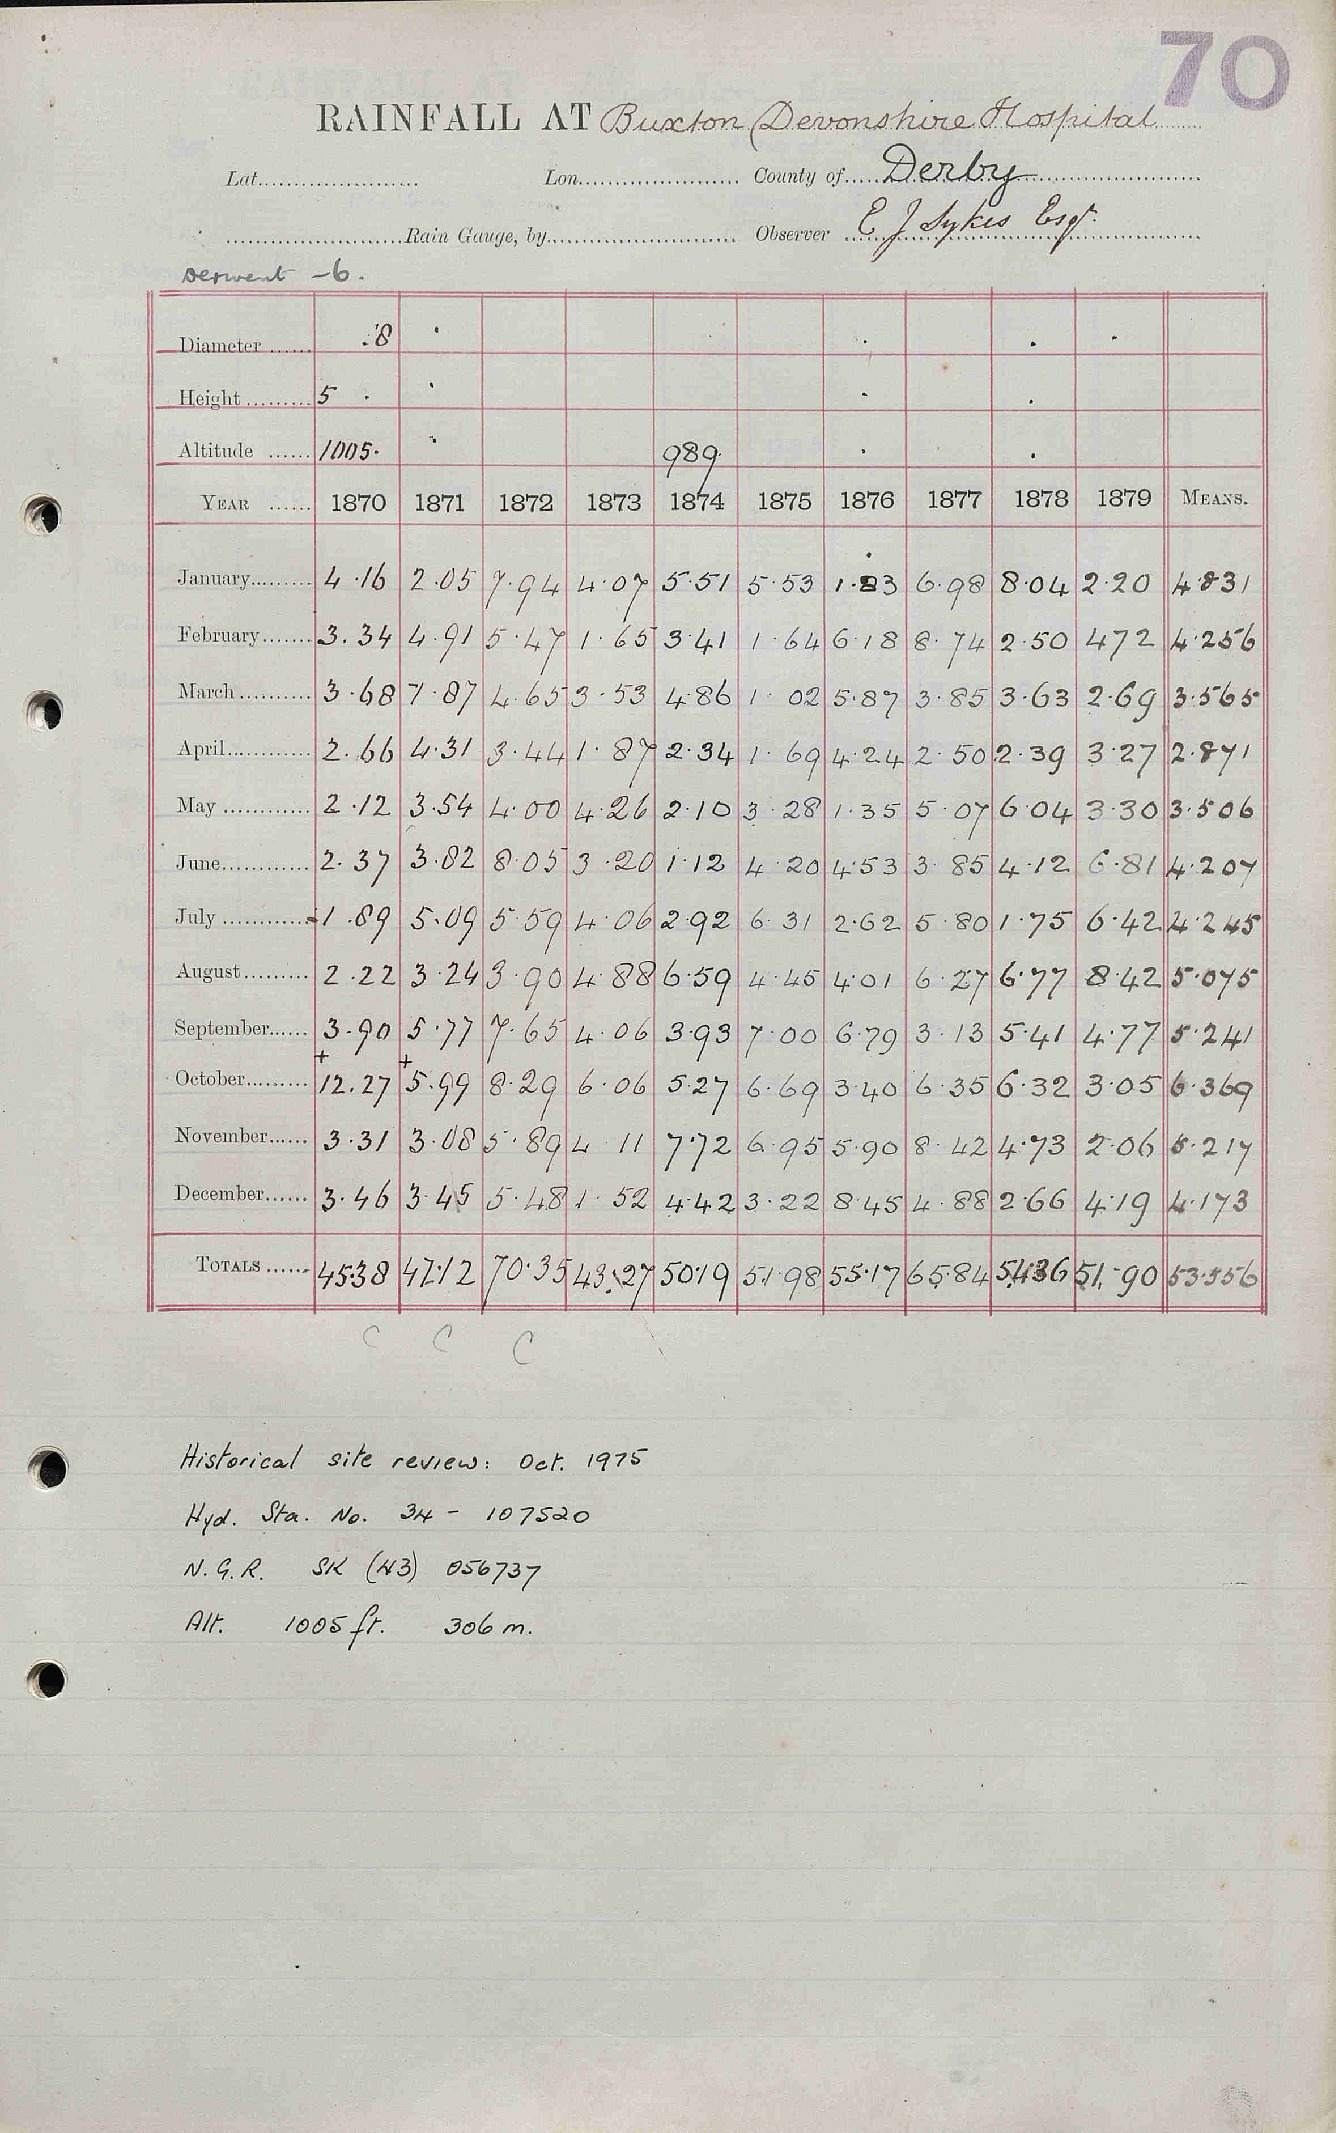 70
RAINFALL AT Buxton (Devonshire Hospital
Lat. Lon. County of Derby
Rain Gauge, by Observer E J Sykes Esqr.
Derwent - 6.
Diameter 8
Height 5
Altitude 1005. 989
YEAR 1870 1871 1872 1873 1874 1875 1876 1877 1878 1879 MEANS.
January 4.16 2.05 7.94 4.07 5.51 5.53 1.83 6.98 8.04 2.20 4.831
February 3.34 4.91 5.47 1.65 3.41 1.64 6.18 8.74 2.50 4.72 4.256
March 3.68 1.87 4.65 3.53 4.86 1.02 5.87 3.85 3.63 2.69 3.565
April 2.66 4.31 3.44 1.87 2.34 1.69 4.24 2.50 2.39 3.27 2.871
May 2.12 3.54 4.00 4.26 2.10 3.28 1.35 5.07 6.04 3.30 3.506
June 2.37 3.82 8.05 3.20 1.12 4.20 4.53 3.85 4.12 6.81 4.207
July 1.89 5.09 5.59 4.06 2.92 6.31 2.62 5.80 1.75 6.42 4.245
August 2.22 3.24 3.90 4.88 6.59 4.45 4.01 6.27 6.77 8.42 5.075
September 3.90 5.77 7.65 4.06 3.93 7.00 6.79 3.13 5.41 4.77 5.241
October +12.27 +5.99 8.29 6.06 5.27 6.69 3.40 6.35 6.32 3.05 6.369
November 3.31 3.08 5.89 4.11 7.72 6.95 5.90 8.42 4.73 2.06 5.217
December 3.46 3.45 5.48 1.52 4.42 3.22 8.45 4.88 2.66 4.19 4.173
TOTALS 45.38 47.12 70.35 43.27 50.19 51.98 55.17 65.84 54.36 51.90 53.556
C C C
Historical site review: Oct. 1975
Hyd. Sta. No. 34 - 107520
N.G.R. SK (43) 056737
Alt. 1005 ft. 306 m.